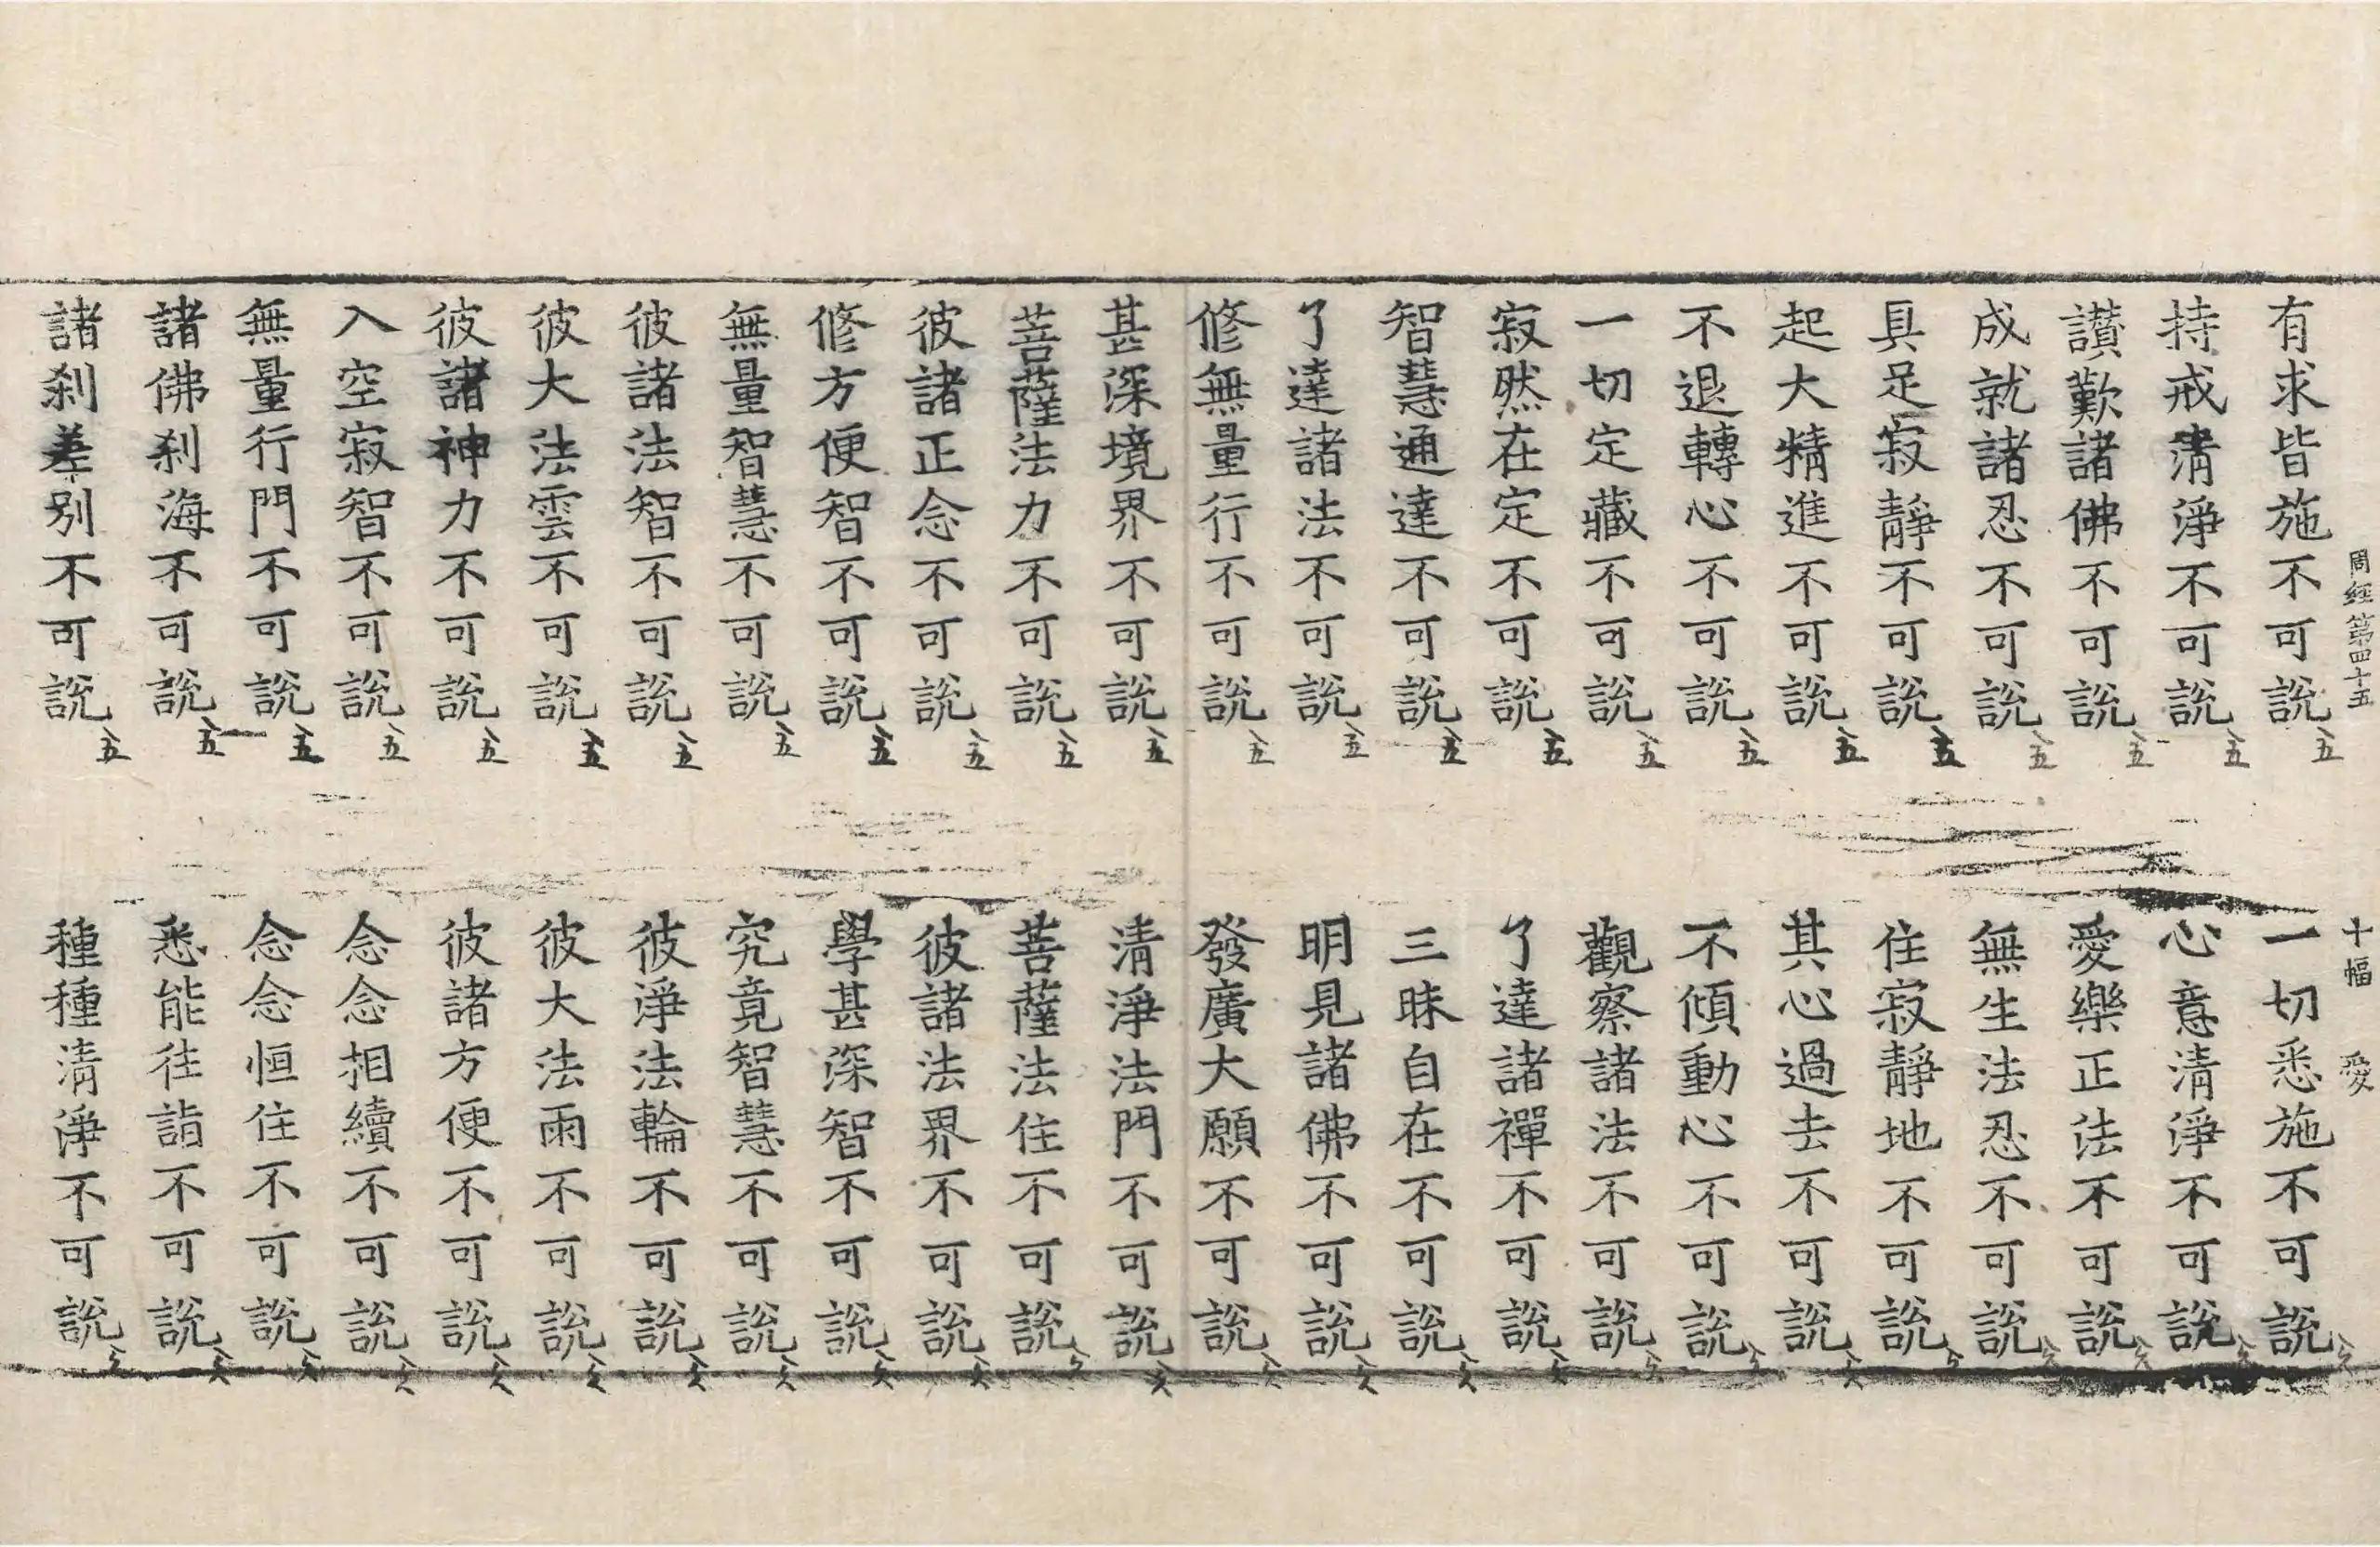 周經第四十五 十幅 愛
有求皆施不可說 一切悉施不可說
持戒清淨不可說 心意清淨不可說
讃歎諸佛不可說 愛樂正法不可說
成就諸忍不可說 無生法忍不可說
具足寂靜不可說 住寂靜地不可說
起大精進不可說 其心過去不可說
不退轉心不可說 不傾動心不可說
一切定藏不可說 觀察諸法不可說
寂然在定不可說 了達諸禪不可說
智慧通達不可說 三昧自在不可說
了達諸法不可說 明見諸佛不可說
修無量行不可說 發廣大願不可說
甚深境界不可說 清淨法門不可說
菩薩法力不可說 菩薩法住不可說
彼諸正念不可說 彼諸法界不可說
修方便智不可說 學甚深智不可說
無量智慧不可說 究竟智慧不可說
彼諸法智不可說 彼淨法輪不可說
彼大法雲不可說 彼大法雨不可說
彼諸神力不可說 彼諸方便不可說
入空寂智不可說 念念相續不可說
無量行門不可說 念念恒住不可說
諸佛刹海不可說 悉能往詣不可說
諸刹差別不可說 種種清淨不可說